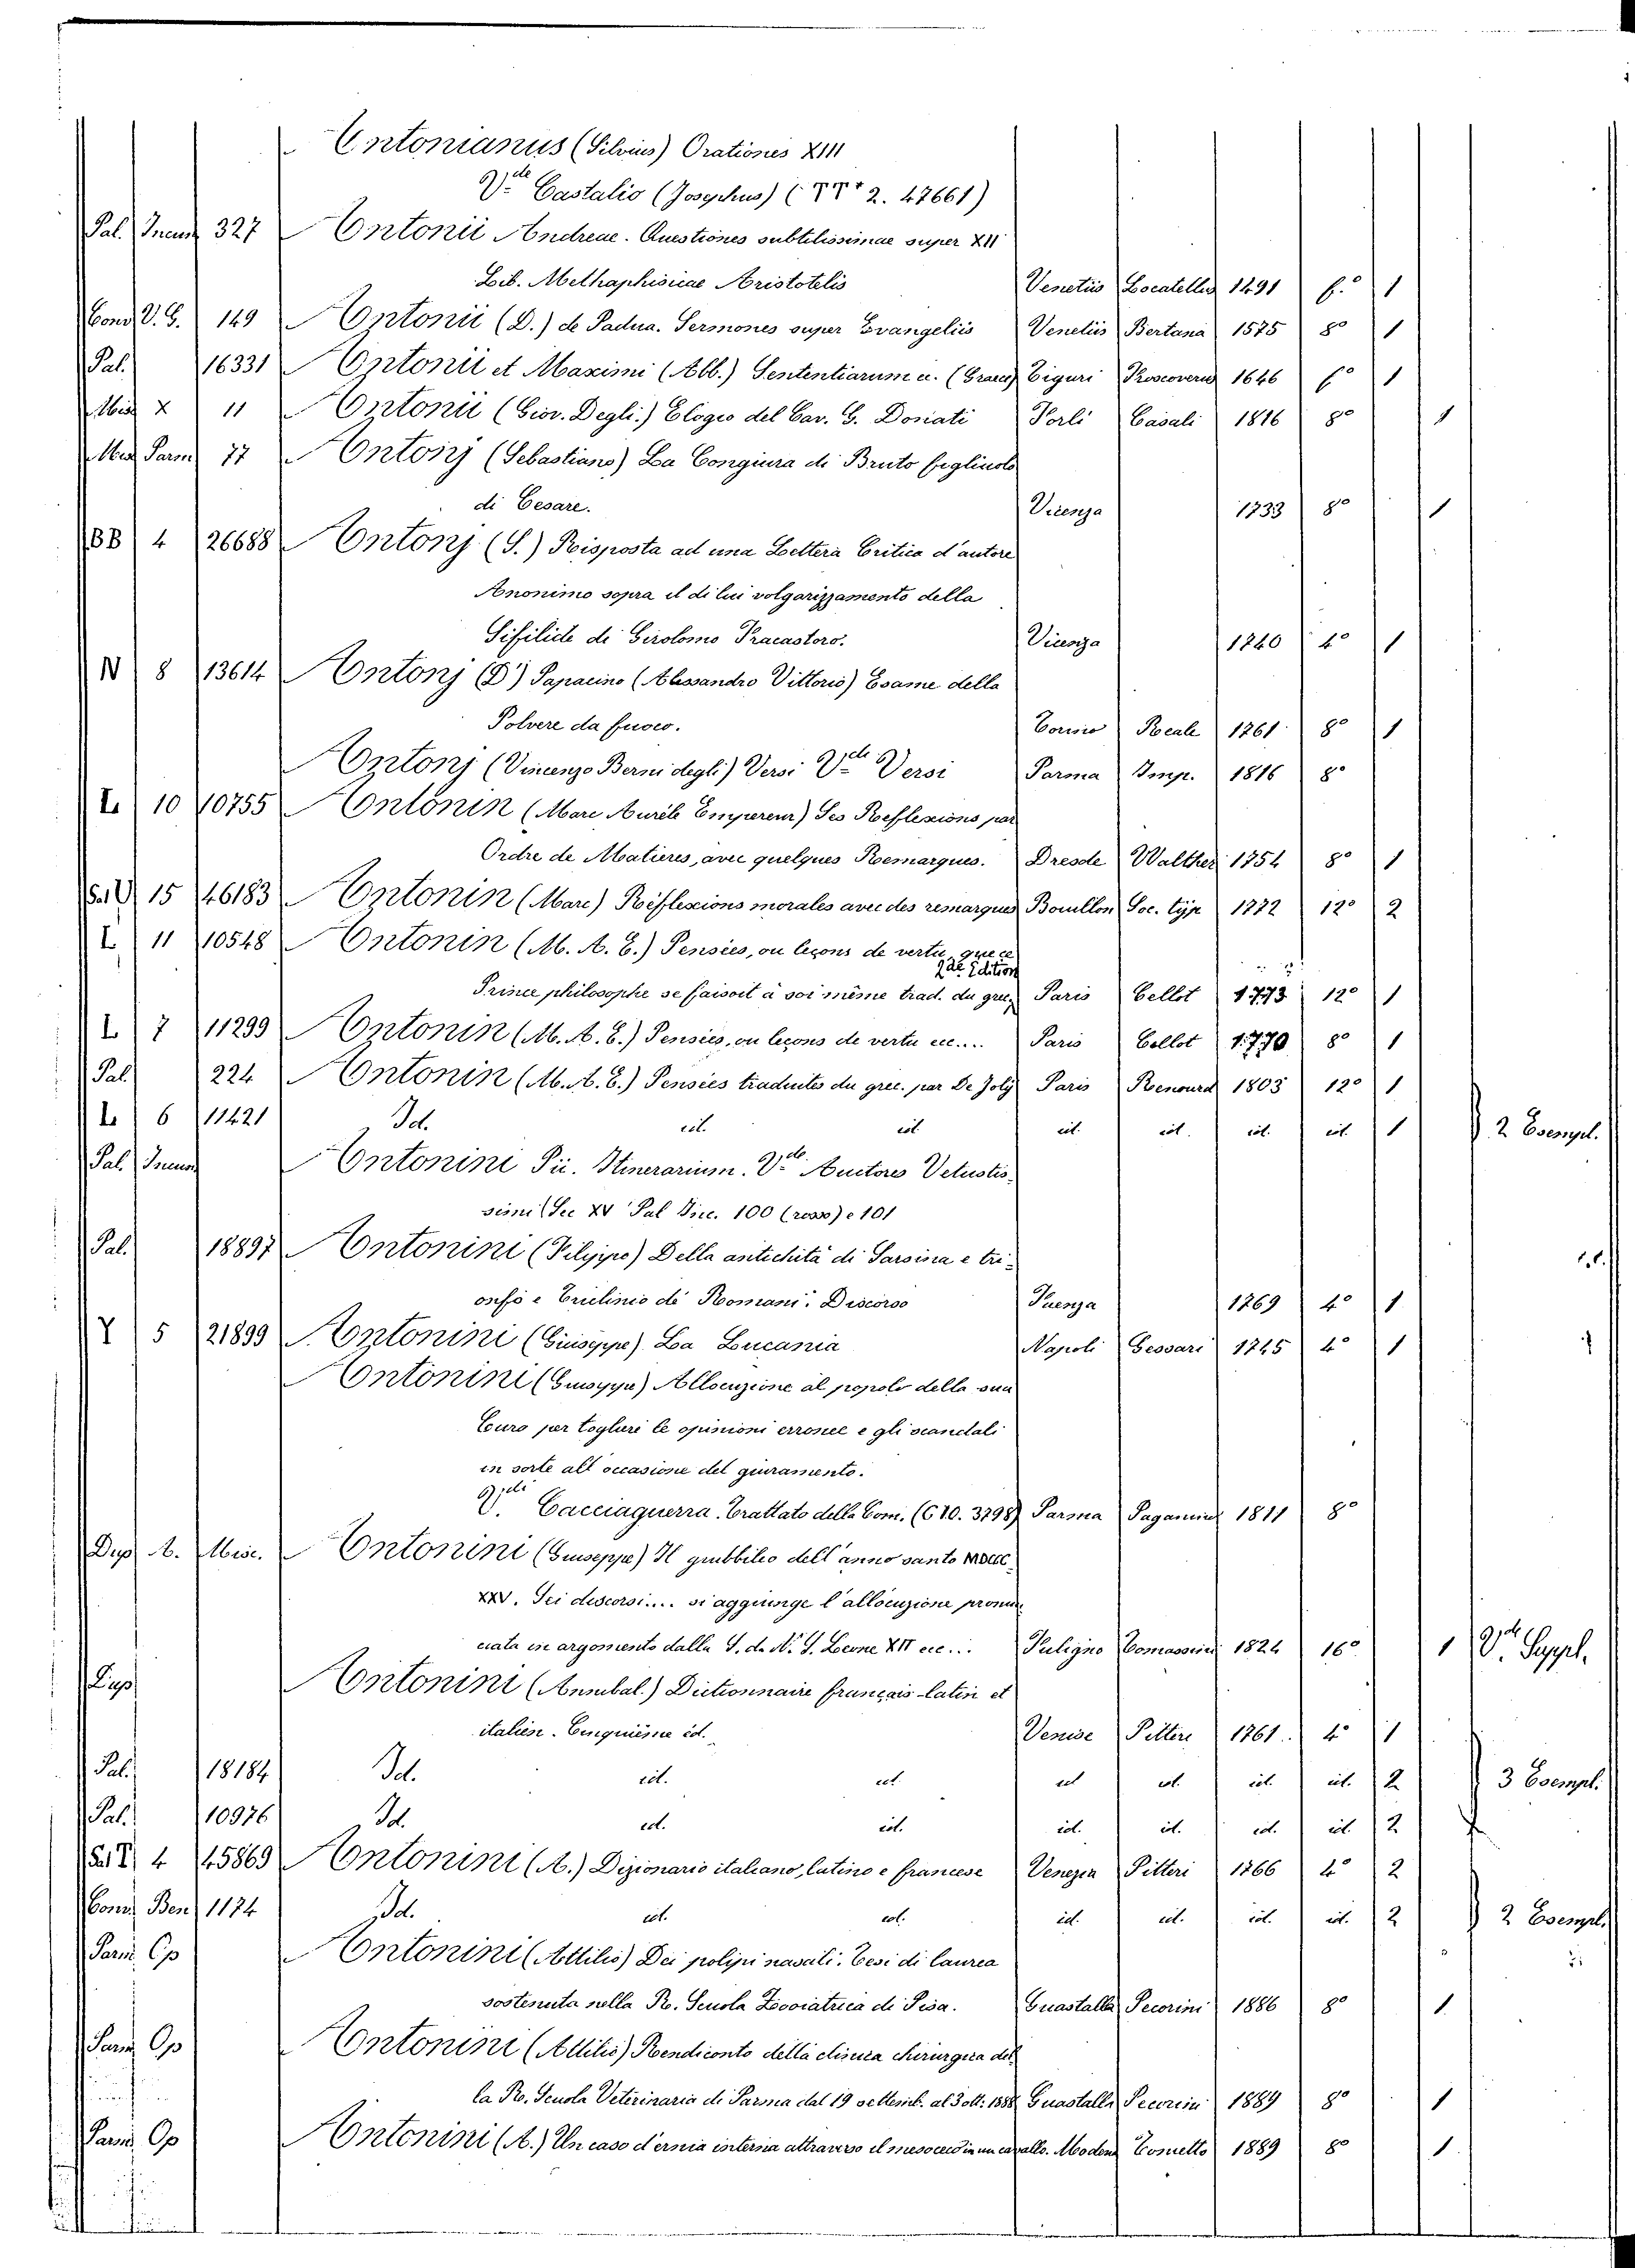 Antonianus (Silvius) Orationes XIII
V.de Castalio (Josephus) (TT* 2. 47661)
Pal. Incun 327 Antonii Andreae. Questiones subtilissimae super XII
Lib. Methaphisicae Aristotelis Venetiis Locatellus 1491 f.° 1
Cons V. G. 149 Antonii (D.) de Padua. Sermones super Evangeliis Venetiis Bertana 1575 8° 1
Pal. 16331 Antonii et Maximi (Abb.) Sententiarum ec. (Graece) Tiguri Froscoverus 1646 f° 1
Misc X 11 Antonii (Giov. Degli.) Elogio del Cav. G. Donati Forli Casali 1816 8° 1
Misc Parm 77 Antonj (Sebastiano) La Congiura di Bruto figliuolo
di Cesare. Vicenza 1733 8° 1
BB 4 26688 Antonj (S.) Risposta ad una Lettera Critica d'autore
Anonimo sopra il di lui volgarizzamento della
Sifilide di Girolomo Fracastoro. Vicenza 1740 4° 1
N 8 13614 Antonj (D') Papacino (Alessandro Vittorio) Esame della
Polvere da fuoco. Torino Reale 1761 8° 1
Antonj (Vincenzo Berni degli) Versi V.de Versi Parma Imp. 1816 8°
L 10 10755 Antonin (Marc Aurèle Empereur) Ses Reflexions par
Ordre de Matieres, avec quelques Remarques. Dresde Walther 1754 8° 1
Sal. V 15 46183 Antonin (Marc) Réflexions morales avec des remarques Bouillon Soc. typ 1772 12° 2
L 11 10548 Antonin (M. A. E.) Pensées, ou leçons de vertu, que ce
2de Edition
Prince philosophe se faisoit à soi même trad. du grec, Paris Cellot 1773 12° 1
L 7 11299 Antonin (M. A. E.) Pensées, ou leçons de vertu ec.... Paris Cellot 1770 8° 1
Pal. 224 Antonin (M. A. E.) Pensées traduites du grec. par De Joly Paris Renouard 1803 12° 1
L 6 11421 Id. id. id. id. id. id. id. 1 2 Esempl.
Pal. Incun Antonini Pii. Itinerarium. V.de Auctores Vetustis-
simi (Sec XV Pal Inc. 100 (rosso) e 101
Pal. 18897 Antonini (Filippo) Della antichità di Sarsina e tri-
onfo e Triclinio de Romani. Discorso Faenza 1769 4° 1
Y 5 21899 Antonini (Giuseppe) La Lucania Napoli Gessari 1745 4° 1
Antonini (Giuseppe) Allocuzione al popolo della sua
Cura per togliere le opinioni erronee e gli scandali
in sorte all'occasione del giuramento.
V.di Cacciaguerra. Trattato della Com. (C 10. 3798) Parma Paganino 1811 8°
Dup A. Misc. Antonini (Giuseppe) Il giubbileo dell'anno santo MDCCC
XXV. Sei discorsi.... si aggiunge l'allocuzione pronun
ciata in argomento dalla S. di N. S. Leone XII ec... Fuligno Tomassini 1824 16° 1 V.di Suppl.
Dup Antonini (Annibal.) Dictionnaire français-latin et
italien. Cinquième éd. Venise Pitteri 1761. 4° 1
Pal. 18184 Id. id. id. id id. id. id. 2 3 Esempl.
Pal. 10976 Id. id. id. id. id. id. id. 2
Sal T 4 45869 Antonini (A.) Dizionario italiano, latino e francese Venezia Pitteri 1766 4° 2
Cons Ben 1174 Id. id. id. id. id. id. id. 2 2 Esempl.
Parm Op Antonini (Attilio) Dei polipi nasali. Tesi di laurea
sostenuta nella R. Scuola Zooiatrica di Pisa. Guastalla Pecorini 1886 8° 1
Parm Op Antonini (Attilio) Rendiconto della clinica chirurgica del-
la R. Scuola Veterinaria di Parma dal 19 settemb. al 3 ott: 1888 Guastalla Pecorini 1889 8° 1
Parm Op Antonini (A.) Un caso d'ernia interna attraverso il mesoceco in un cavallo. Modena Toniello 1889 8° 1